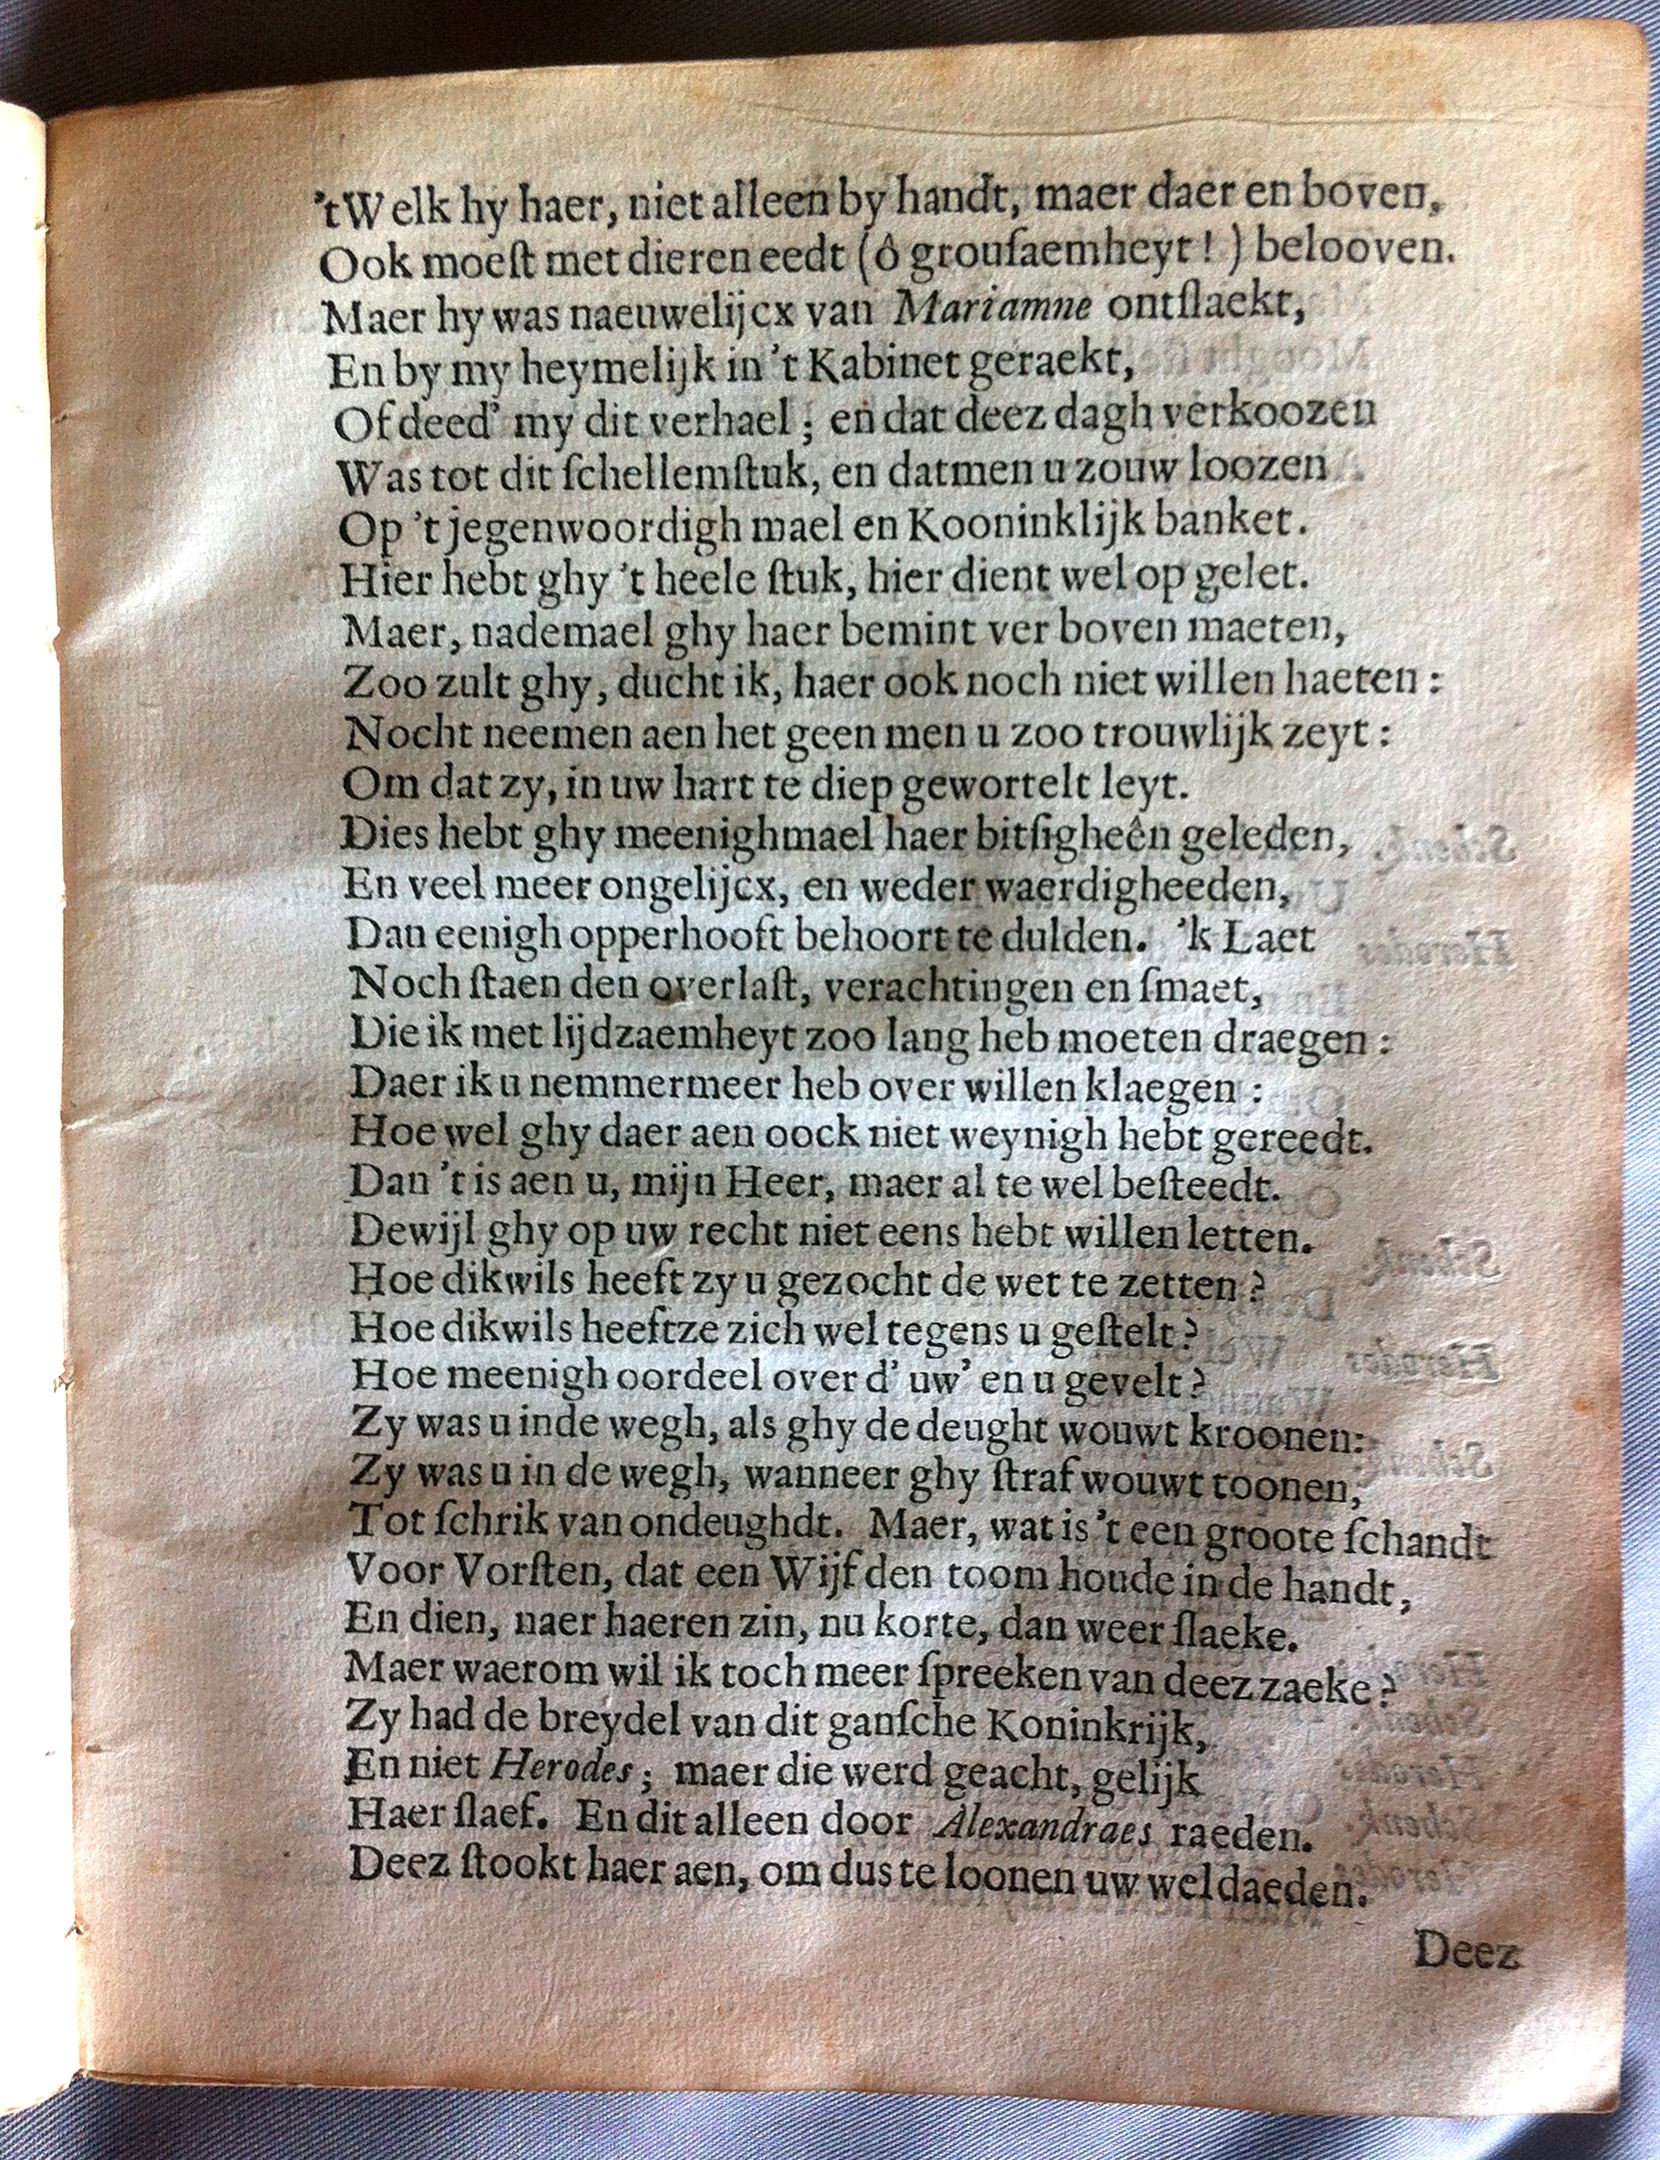 'tWelk hy haer, niet alleen by handt, maer daer en boven,
Ook moeſt met dieren eedt (ô grouſaemheyt! ) belooven.
Maer hy was naeuwelijcx van Mariamne ontſlaekt,
En by my heymelijk in 't Kabinet geraekt,
Of deed' my dit verhael; en dat deez dagh verkoozen
Was tot dit ſchellemſtuk, en datmen u zouw loozen
Op 't jegenwoordigh mael en Kooninklijk banket.
Hier hebt ghy 't heele ſtuk, hier dient wel op gelet.
Maer, nademael ghy haer bemint ver boven maeten,
Zoo zult ghy, ducht ik, haer ook noch niet willen haeten:
Nocht neemen aen het geen men u zoo trouwlijk zeyt:
Om dat zy, in uw hart te diep gewortelt leyt.
Dies hebt ghy meenighmael haer bitſigheên geleden,
En veel meer ongelijcx, en weder waerdigheeden,
Dan eenigh opperhooft behoort te dulden. 'k Laet
Noch ſtaen den overlaſt, verachtingen en ſmaet,
Die ik met lijdzaemheyt zoo lang heb moeten draegen:
Daer ik u nemmermeer heb over willen klaegen:
Hoe wel ghy daer aen oock niet weynigh hebt gereedt.
Dan 't is aen u, mijn Heer, maer al te wel beſteedt.
Dewijl ghy op uw recht niet eens hebt willen letten.
Hoe dikwils heeft zy u gezocht de wet te zetten?
Hoe dikwils heeftze zich wel tegens u geſtelt?
Hoe meenigh oordeel over d' uw' en u gevelt?
Zy was u inde wegh, als ghy de deught wouwt kroonen:
Zy was u in de wegh, wanneer ghy ſtraf wouwt toonen,
Tot ſchrik van ondeughdt. Maer, wat is 't een groote ſchandt
Voor Vorſten, dat een Wijf den toom houde in de handt,
En dien, naer haeren zin, nu korte, dan weer ſlaeke.
Maer waerom wil ik toch meer ſpreeken van deez zaeke?
Zy had de breydel van dit ganſche Koninkrijk,
En niet Herodes; maer die werd geacht, gelijk
Haer ſlaef. En dit alleen door Alexandraes raeden.
Deez ſtookt haer aen, om dus te loonen uw weldaeden.
Deez